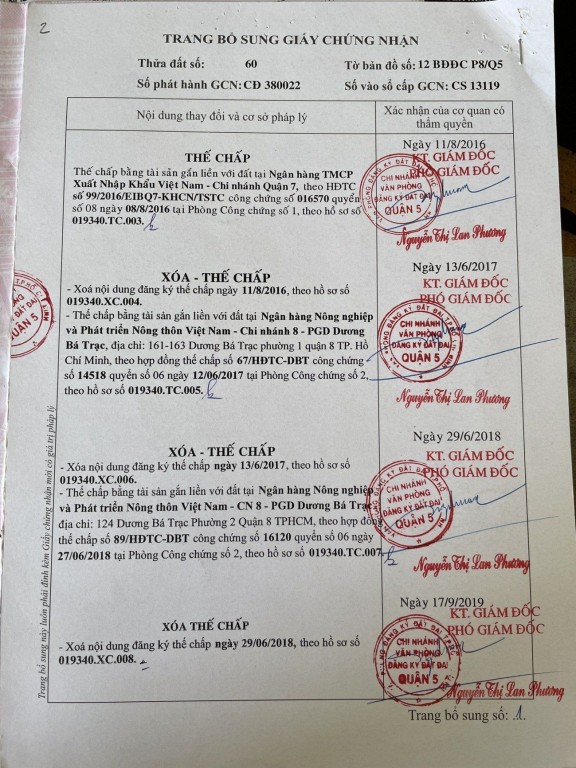 2
TRANG BỔ SUNG GIẤY CHỨNG NHẬN
Thửa đất số: 60 Tờ bản đồ số: 12 BĐĐC P8/Q5
Số phát hành GCN: CĐ 380022 Số vào sổ cấp GCN: CS 13119
Nội dung thay đổi và cơ sở pháp lý
Xác nhận của cơ quan có
thẩm quyền
THẾ CHẤP
Thế chấp bằng tài sản gắn liền với đất tại Ngân hàng TMCP
Xuất Nhập Khẩu Việt Nam - Chi nhánh Quận 7, theo HĐTC
số 99/2016/EIBQ7-KHCN/TSTC công chứng số 016570 quyển
số 08 ngày 08/8/2016 tại Phòng Công chứng số 1, theo hồ sơ số
019340.TC.003.
Ngày 11/8/2016
KT. GIÁM ĐỐC
PHÓ GIÁM ĐỐC
CHI NHÁNH
VĂN PHÒNG
ĐĂNG KÝ ĐẤT ĐAI
QUẬN 5
Nguyễn Thị Lan Phương
XÓA - THẾ CHẤP
- Xoá nội dung đăng ký thế chấp ngày 11/8/2016, theo hồ sơ số
019340.XC.004.
- Thế chấp bằng tài sản gắn liền với đất tại Ngân hàng Nông nghiệp
và Phát triển Nông thôn Việt Nam - Chi nhánh 8 - PGD Dương
Bá Trạc, địa chỉ: 161-163 Dương Bá Trạc phường 1 quận 8 TP. Hồ
Chí Minh, theo hợp đồng thế chấp số 67/HĐTC-DBT công chứng
số 14518 quyển số 06 ngày 12/06/2017 tại Phòng Công chứng số 2,
theo hồ sơ số 019340.TC.005.
Ngày 13/6/2017
KT. GIÁM ĐỐC
PHÓ GIÁM ĐỐC
CHI NHÁNH
VĂN PHÒNG
ĐĂNG KÝ ĐẤT ĐAI
QUẬN 5
Nguyễn Thị Lan Phương
XÓA - THẾ CHẤP
- Xóa nội dung đăng ký thế chấp ngày 13/6/2017, theo hồ sơ số
019340.XC.006.
- Thế chấp bằng tài sản gắn liền với đất tại Ngân hàng Nông nghiệp
và Phát triển Nông thôn Việt Nam - CN 8 - PGD Dương Bá Trạc
địa chỉ: 124 Dương Bá Trạc Phường 2 Quận 8 TPHCM, theo hợp đồng
thế chấp số 89/HĐTC-DBT công chứng số 16120 quyển số 06 ngày
27/06/2018 tại Phòng Công chứng số 2, theo hồ sơ số 019340.TC.007
Ngày 29/6/2018
KT. GIÁM ĐỐC
PHÓ GIÁM ĐỐC
CHI NHÁNH
VĂN PHÒNG
ĐĂNG KÝ ĐẤT ĐAI
QUẬN 5
Nguyễn Thị Lan Phương
XÓA THẾ CHẤP
- Xoá nội dung đăng ký thế chấp ngày 29/06/2018, theo hồ sơ số
019340.XC.008.
Ngày 17/9/2019
KT. GIÁM ĐỐC
PHÓ GIÁM ĐỐC
CHI NHÁNH
VĂN PHÒNG
ĐĂNG KÝ ĐẤT ĐAI
QUẬN 5
Nguyễn Thị Lan Phương
Trang bổ sung này luôn phải đính kèm Giấy chứng nhận mới có giá trị pháp lý
Trang bổ sung số: 1.